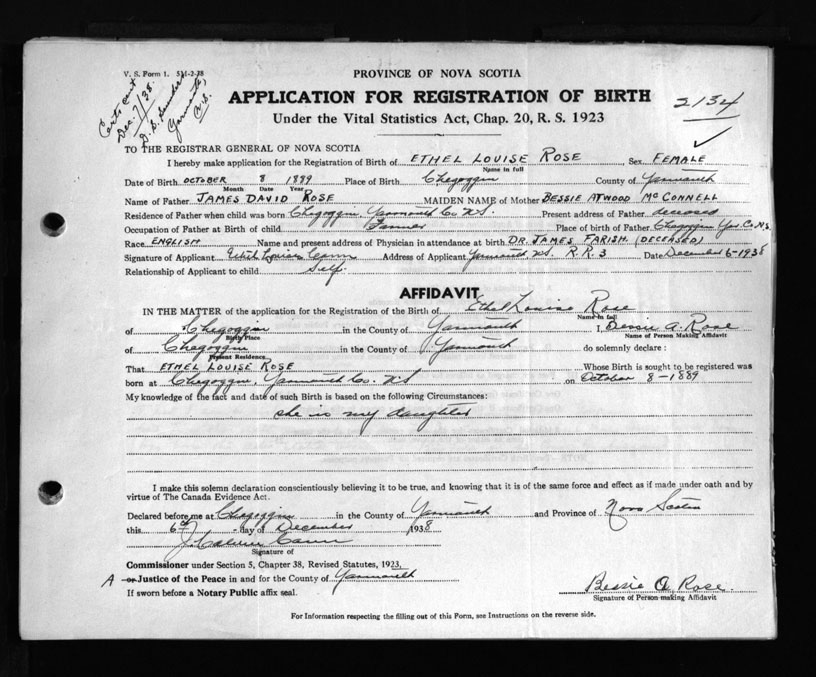 V. S. Form 1.
Certs sent
Dec. 7/38.
Yarmouth,
N.S.
PROVINCE OF NOVA SCOTIA
APPLICATION FOR REGISTRATION OF BIRTH
2134
Under the Vital Statistics Act, Chap. 20, R. S. 1923
TO THE REGISTRAR GENERAL OF NOVA SCOTIA
I hereby make application for the Registration of Birth of ETHEL LOUISE ROSE Sex FEMALE
Name in full
Date of Birth OCTOBER 8 1889 Place of Birth Chegoggin County of Yarmouth
Month Date Year
Name of Father JAMES DAVID ROSE MAIDEN NAME of Mother BESSIE ATWOOD McCONNELL
Residence of Father when child was born Chegoggin, Yarmouth Co N.S. Present address of Father deceased
Occupation of Father at Birth of child Farmer Place of Birth of Father Chegoggin Yar. Co N.S.
Race ENGLISH Name and present address of Physician in attendance at birth DR. JAMES FARISH (DECEASED)
Signature of Applicant Ethel Louise Cann Address of Applicant Yarmouth N.S. R.R.3 Date December 6-1938
Relationship of Applicant to child Self.
AFFIDAVIT
IN THE MATTER of the application for the Registration of the Birth of Ethel Louise Rose
Name in full
of Chegoggin in the County of Yarmouth I, Bessie A. Rose
Birth Place Name of Person Making Affidavit
of Chegoggin in the County of Yarmouth do solemnly declare :
Present Residence
That ETHEL LOUISE ROSE Whose Birth is sought to be registered was
born at Chegoggin, Yarmouth Co. N.S on October 8-1889
My knowledge of the fact and date of such Birth is based on the following Circumstances:
she is my daughter
I make this solemn declaration conscientiously believing it to be true, and knowing that it is of the same force and effect as if made under oath and by
virtue of The Canada Evidence Act.
Declared before me at Chegoggin in the County of Yarmouth and Province of Nova Scotia
this 6th day of December 1938
J. Calvin Cann
Signature of
Commissioner under Section 5, Chapter 38, Revised Statutes, 1923,
A or Justice of the Peace in and for the County of Yarmouth
Bessie A. Rose.
If sworn before a Notary Public affix seal.
Signature of Person making Affidavit
For Information respecting the filling out of this Form, see Instructions on the reverse side.